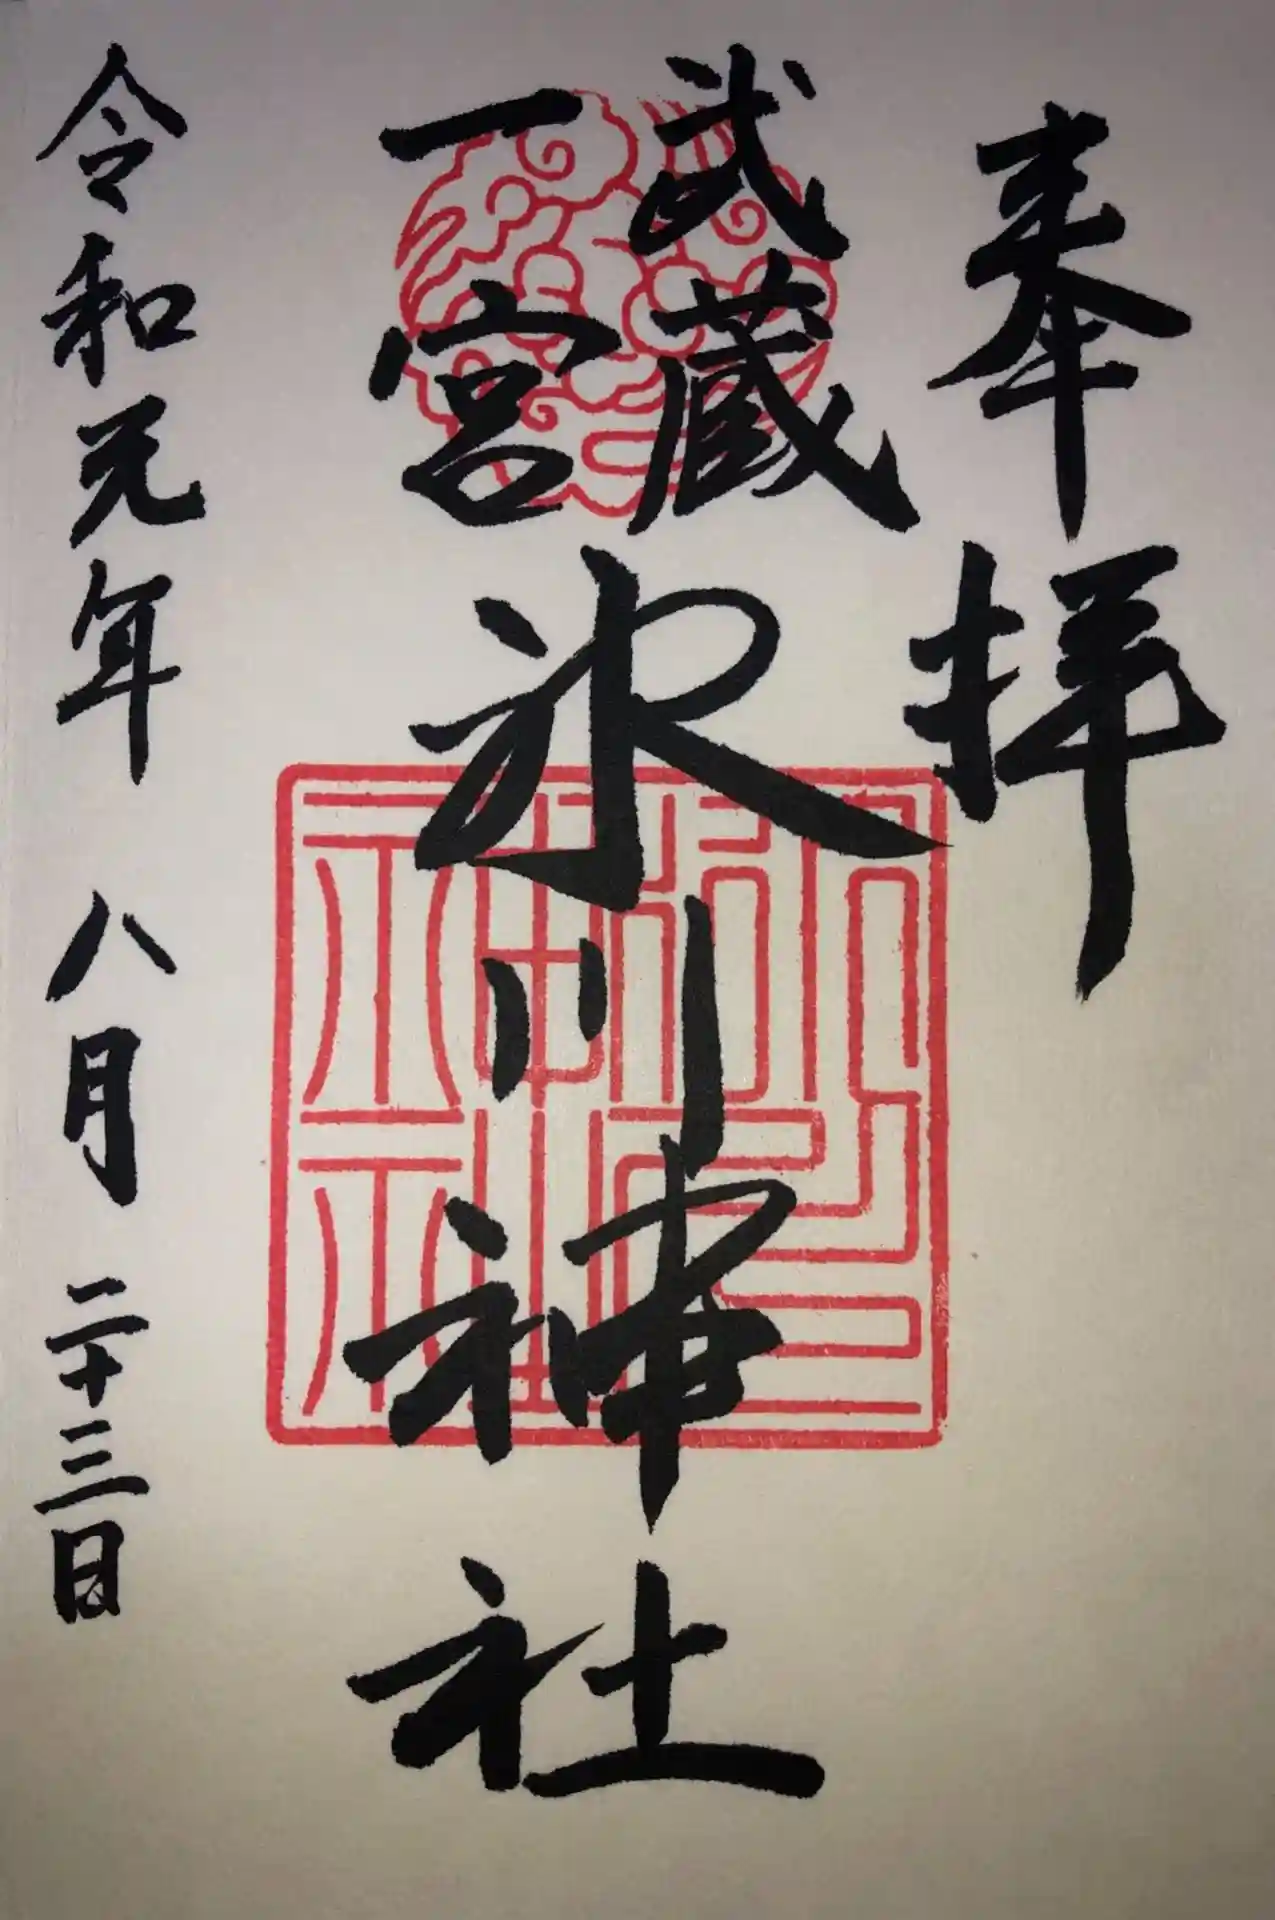 奉拝
武蔵
一宮
氷川神社
令和元年八月二十三日
氷川
神社